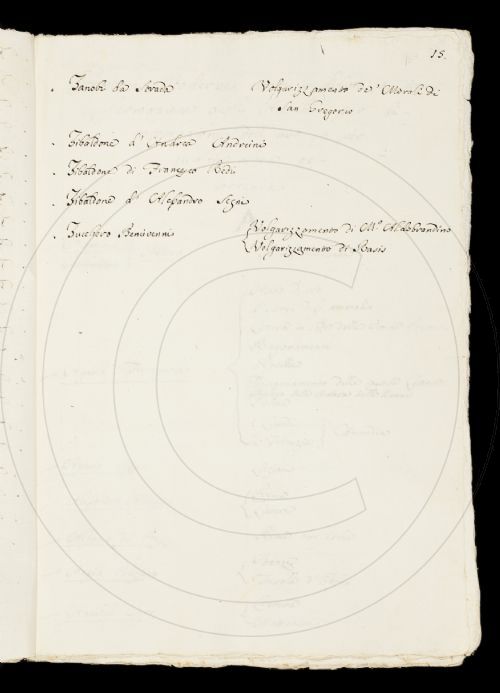 15.
. Zanobi da Strada Volgarizzamento de' Morali di
San Gregorio
. Zibaldone d' Andrea Andreini
. Zibaldone di Francesco Redi
. Zibaldone d' Alessandro Segni
. Zucchero Bencivenni Volgarizzamento di M.º Aldobrandino
Volgarizzamento di Rasis